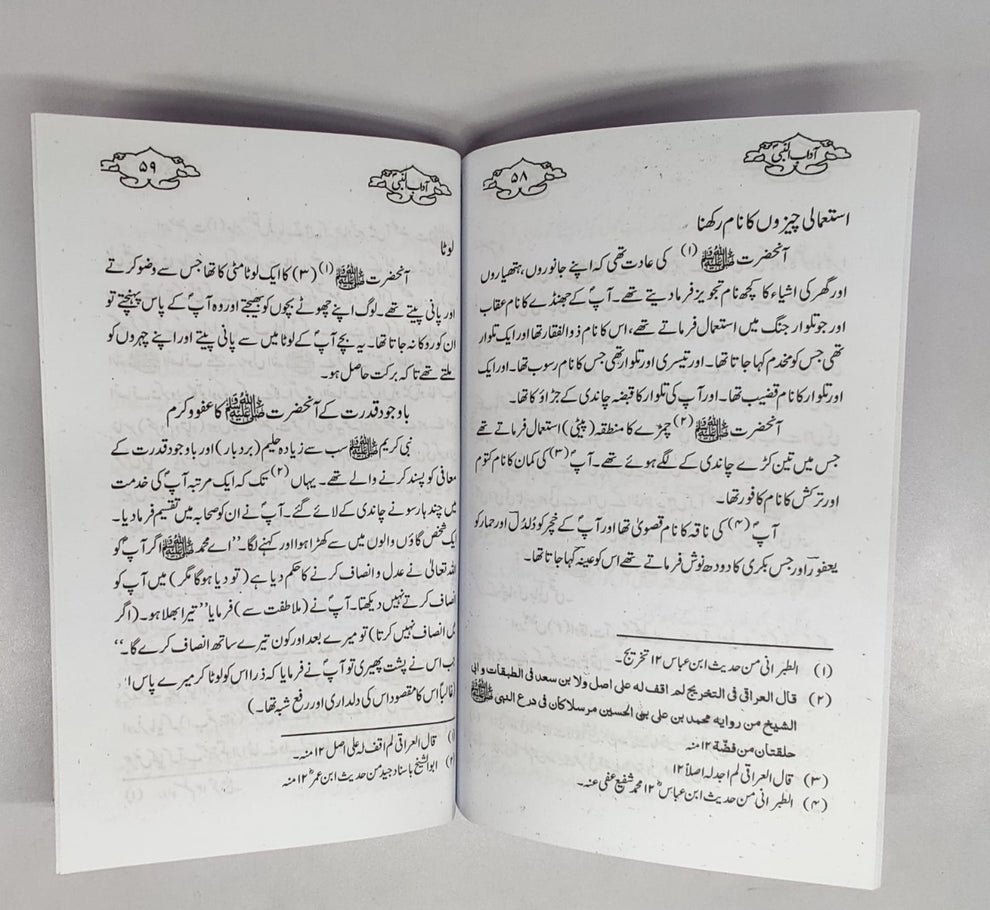 آداب النبیؐ
۵۸
استعمالی چیزوں کا نام رکھنا
آنحضرت ﷺ (۱) کی عادت تھی کہ اپنے جانوروں، ہتھیاروں
اور گھر کی اشیاء کا کچھ نام تجویز فرمادیتے تھے۔ آپ کے جھنڈے کا نام عقاب
اور جو تلوار جنگ میں استعمال فرماتے تھے، اس کا نام ذوالفقار تھا اور ایک تلوار
تھی جس کو مخدم کہا جاتا تھا۔ اور تیسری اور تلوار تھی جس کا نام رسوب تھا۔ اور ایک
اور تلوار کا نام قضیب تھا۔ اور آپ کی تلوار کا قبضہ چاندی کے جڑاؤ کا تھا۔
آنحضرت ﷺ (۲) چمڑے کا منطقہ (پیٹی) استعمال فرماتے تھے
جس میں تین کڑے چاندی کے لگے ہوئے تھے۔ آپؐ (۳) کی کمان کا نام کتوم
اور ترکش کا نام کافور تھا۔
آپؐ (۴) کی ناقہ کا نام قصویٰ تھا اور آپؐ کے خچر کو دُلدُل اور حمار کو
یعفور اور جس بکری کا دودھ نوش فرماتے تھے اس کو عینہ کہا جاتا تھا۔
(۱) الطبرانی من حدیث ابن عباس ۱۲ تخریج۔
(۲) قال العراقی فی التخریج لم اقف له علی اصل ولا بن سعد فی الطبقات و ابی
الشیخ من روایه محمد بن علی بن الحسین مرسلا کان فی درع النبی ﷺ
حلقتان من فضّة ۱۲ منه
(۳) قال العراقی لم اجد له اصلاً ۱۲
(۴) الطبرانی من حدیث ابن عباسؓ ۱۲ محمد شفیع عفی عنہ۔
آداب النبیؐ
۵۹
لوٹا
آنحضرت ﷺ (۱) (۳) کا ایک لوٹا مٹی کا تھا جس سے وضو کرتے
اور پانی پیتے تھے۔ لوگ اپنے چھوٹے بچوں کو بھیجتے اور وہ آپؐ کے پاس پہنچتے تو
ان کو روکا نہ جاتا تھا۔ یہ بچے آپؐ کے لوٹا میں سے پانی پیتے اور اپنے چہروں کو
ملتے تھے تاکہ برکت حاصل ہو۔
باوجود قدرت کے آنحضرت ﷺ کا عفو و کرم
نبی کریم ﷺ سب سے زیادہ حلیم (بردبار) اور باوجود قدرت کے
معافی کو پسند کرنے والے تھے۔ یہاں (۲) تک کہ ایک مرتبہ آپؐ کی خدمت
میں چند ہار سونے چاندی کے لائے گئے۔ آپؐ نے ان کو صحابہ میں تقسیم فرمادیا۔
یک شخص گاؤں والوں میں سے کھڑا ہوا اور کہنے لگا۔ ’’اے محمد ﷺ اگر آپؐ کو
اللہ تعالیٰ نے عدل و انصاف کرنے کا حکم دیا ہے (تو دیا ہوگا مگر) میں آپ کو
نصاف کرتے نہیں دیکھتا۔ آپؐ نے (ملاطفت سے) فرمایا ’’تیرا بھلا ہو۔ (اگر
انصاف نہیں کرتا) تو میرے بعد اور کون تیرے ساتھ انصاف کرے گا۔‘‘
جب اس نے پشت پھیری تو آپؐ نے فرمایا کہ ذرا اس کو لوٹا کر میرے پاس
غالباً اس کا مقصود اس کی دلداری اور رفع شبہ تھا۔)
قال العراقی لم اقف لہ علی اصل ۱۲ منہ۔
ابو الشیخ باسناد جید من حدیث ابن عمرؓ ۱۲ منہ